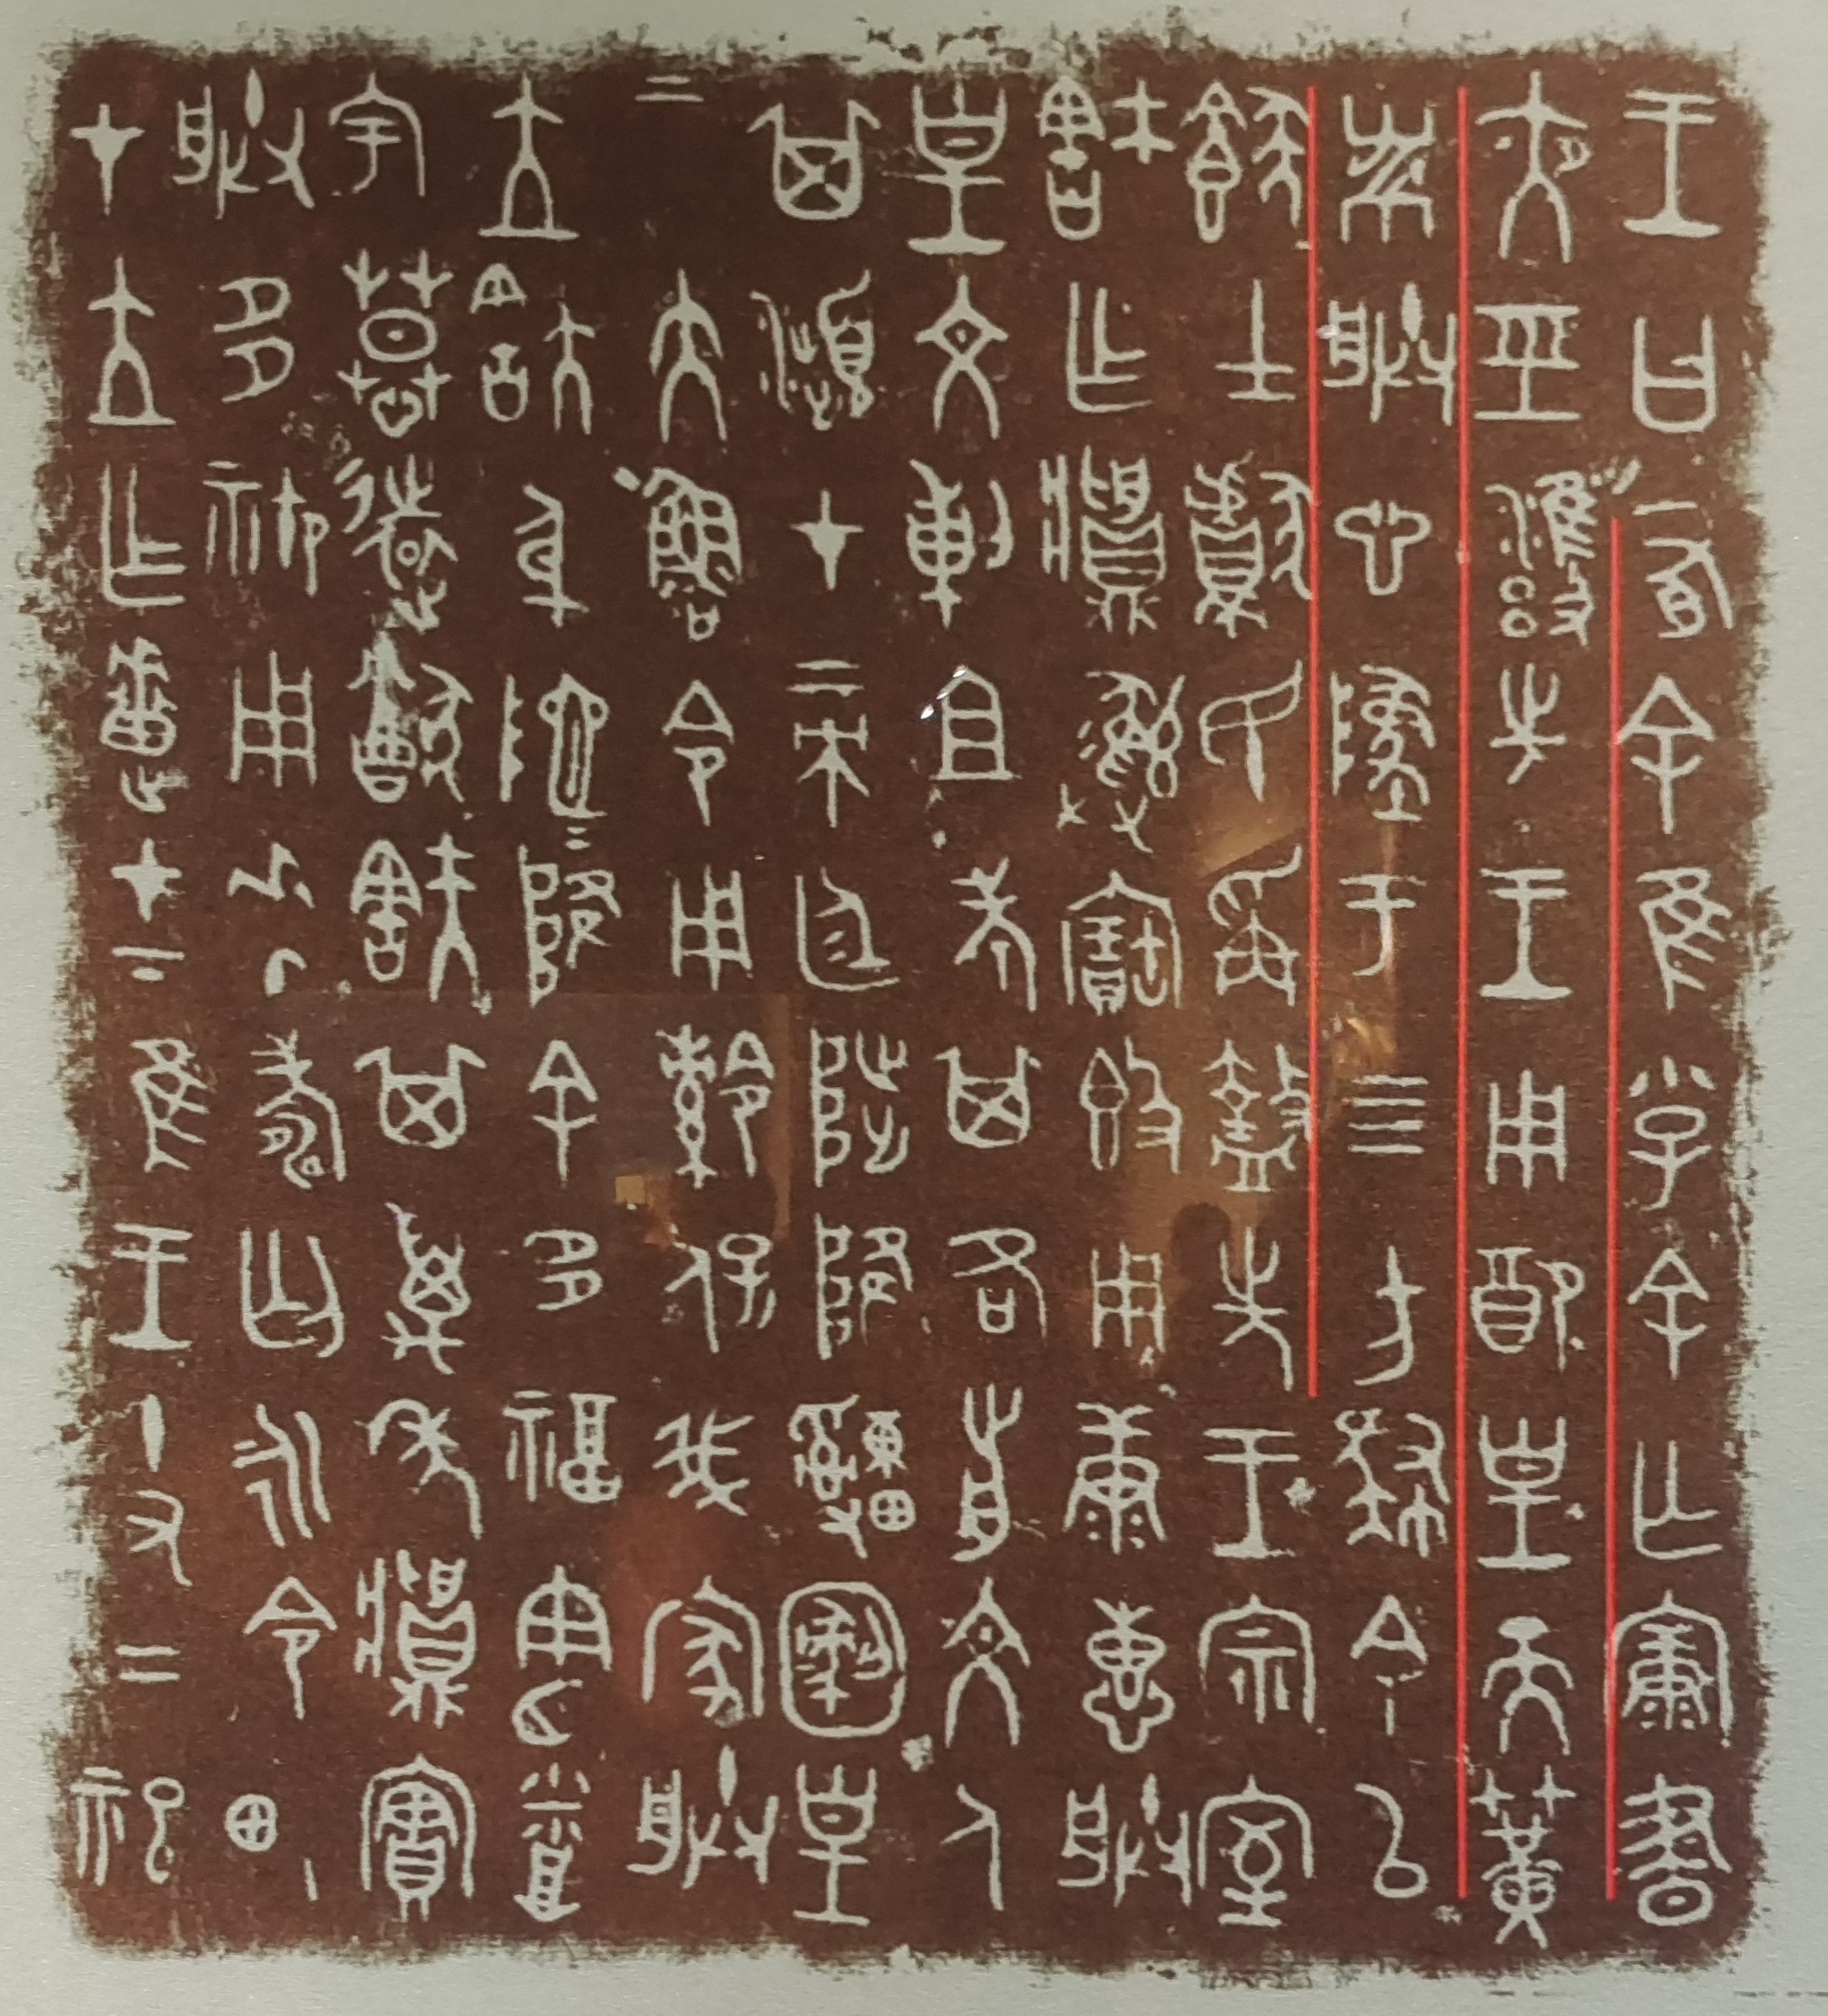 王曰有余隹小子余亡康晝
夜巠雍先王用配皇天簧
黹朕心墜于四方肆余以
士獻民爯盩先王宗室
㝬乍䵼彝寶簋用康惠朕
皇文剌且考其各前文人
其瀕才帝廷陟降圂皇
帝大魯令用保我家朕
立㝬身阤=降余多福憲烝
宇慕遠猷㝬其萬年䵼實
朕多禦用壽匄永令畯
才立乍疐才下隹王十又二祀